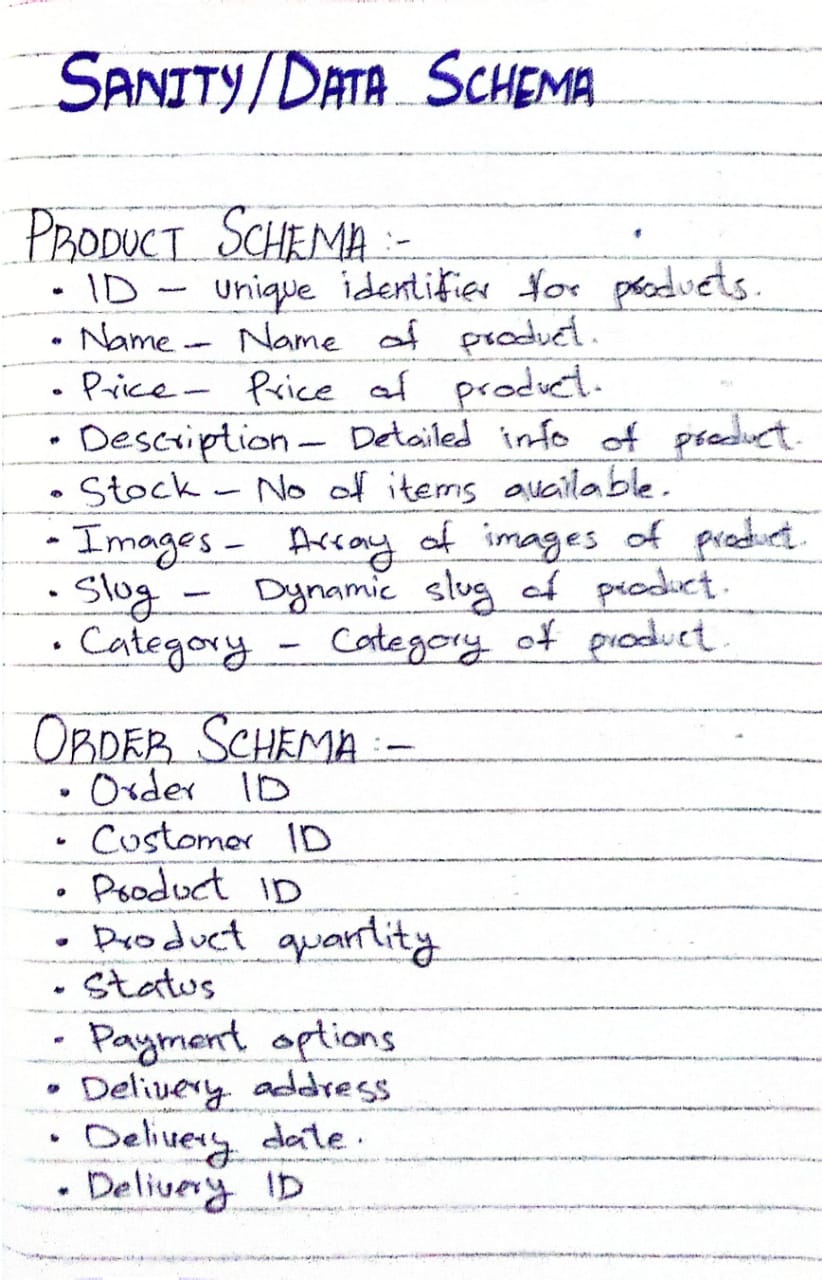 SANITY/DATA SCHEMA
PRODUCT SCHEMA :-
• ID – unique identifier for products.
• Name – Name of product.
• Price – Price of product.
• Description – Detailed info of product.
• Stock – No of items available.
• Images – Array of images of product.
• Slug – Dynamic slug of product.
• Category – Category of product.
ORDER SCHEMA :-
• Order ID
• Customer ID
• Product ID
• Product quantity
• Status
• Payment options
• Delivery address
• Delivery date.
• Delivery ID